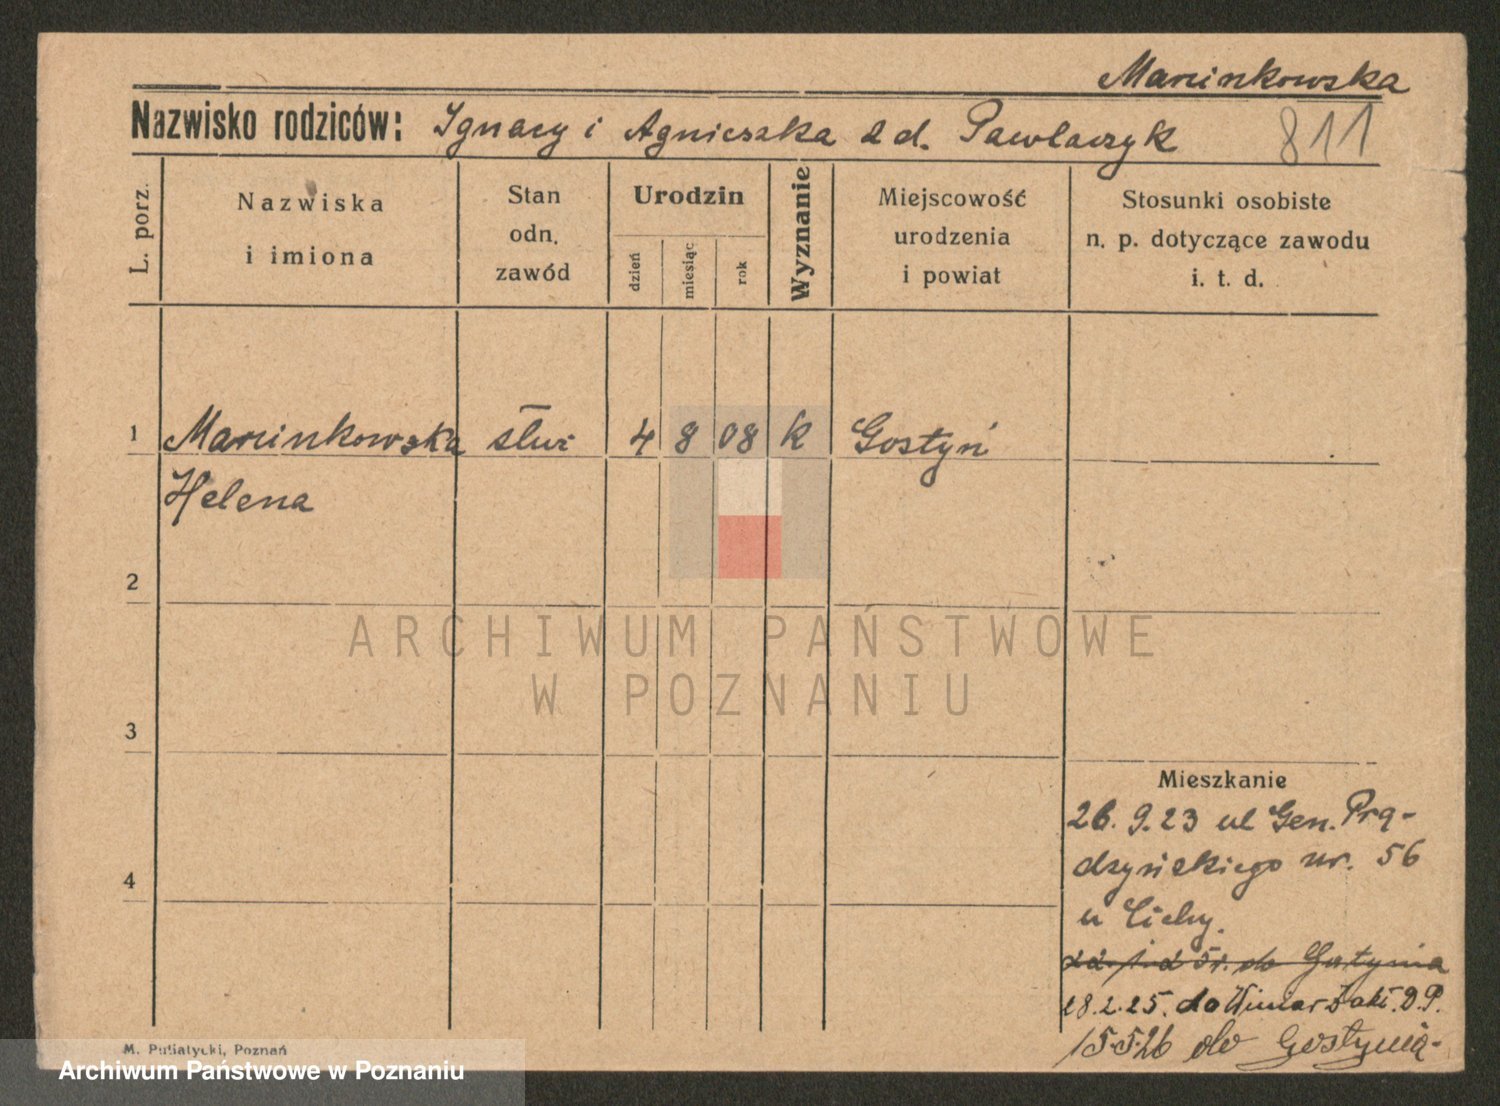 Marcinkowska
Nazwisko rodziców: Ignacy i Agnieszka z d. Pawlaczyk 811
L. porz.
Nazwiska
i imiona
Stan
odn.
zawód
Urodzin
dzień
miesiąc
rok
Wyznanie
Miejscowość
urodzenia
i powiat
Stosunki osobiste
n. p. dotyczące zawodu
i. t. d.
1 Marcinkowska służ 4 8 08 k Gostyń
Helena
2
3
4
ARCHIWUM PAŃSTWOWE
W POZNANIU
Mieszkanie
26. 9. 23 ul Gen. Prą-
dzyńskiego nr. 56
u Cichy.
do Gostynia
28. 2. 25. do Winiar Zakł. D. P.
15.5.26 do Gostynia-
M. Putiatycki, Poznań
Archiwum Państwowe w Poznaniu